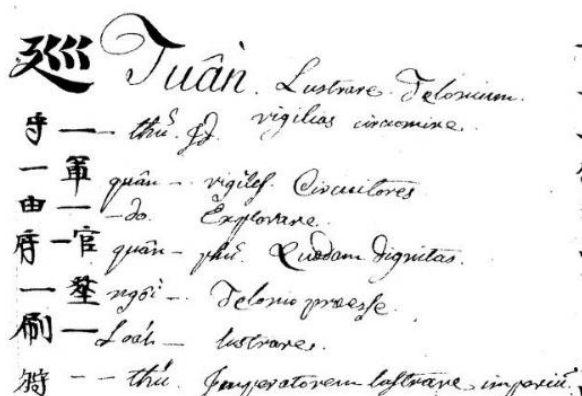 廵 Tuần. Lustrare. Telonium.
vigilias circumire.
守 — thủ. Id.
一 軍 quân — vigiles. Circuitores
由 — — do. Explorare.
府 一 官 quân — phủ. Quædam dignitas.
一 ngồi — Telonio præesse.
刷 — Loát — lustrare.
狩 — — thú. Imperatorem lustrare imperiũ.